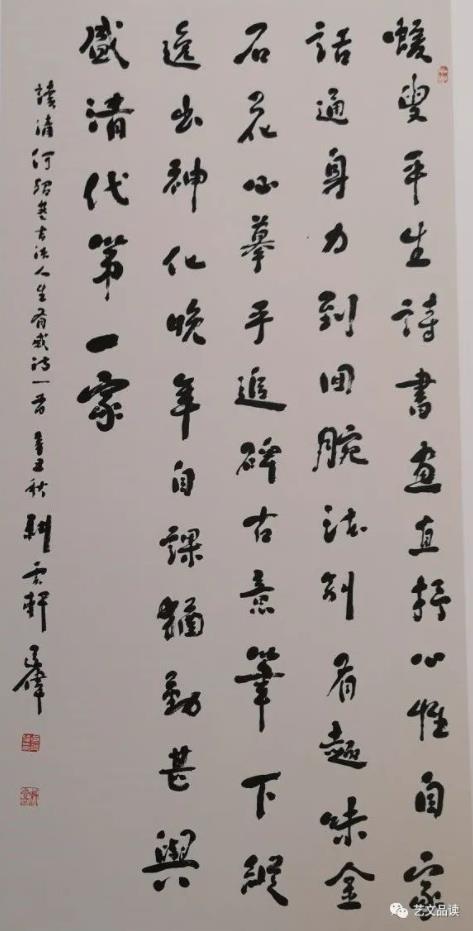 蝯叟平生詩書畫直抒心性自家
話通身力到回腕法別有趣味金
石花心摹手追碑古意筆下縱
逸出神化晚年自課猶勤甚興
盛清代第一家
讀清何紹基書法人生有感詩一首 辛丑秋 雲軒
艺文品读